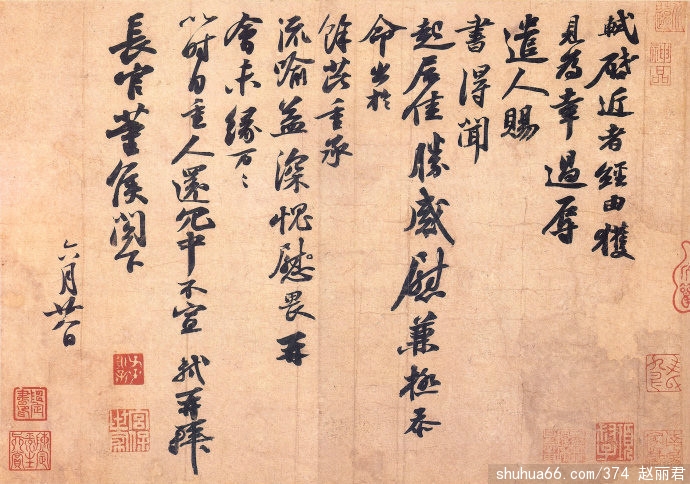 軾啓近者經由獲
見為幸過辱
遣人賜
書得聞
起居佳勝感慰兼極忝
命出於
餘芘重承
流喻益深愧慰畏再
會未緣万〻
以時自重人還冗中不宣 軾再拜
長官董侯閤下
六月廿八日
神品
shuhua66.com/374 赵丽君